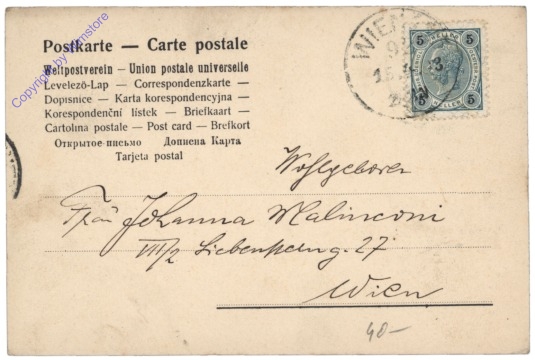 Postkarte — Carte postale
Weltpostverein – Union postale universelle
Levelező-Lap — Correspondenzkarte —
Dopisnice — Karta korespondencyjna —
Korespondenční lístek — Briefkaart —
Cartolina postale — Post card — Brefkort
Открытое-письмо Дописна Карта
Tarjeta postal
Copyright by ansichtskartenstore
WIEN
5 5
5 5
HELLER
Wohlgeboren
Frau Johanna Malinconi
VIII/2 Liebenberg. 27
Wien
40–